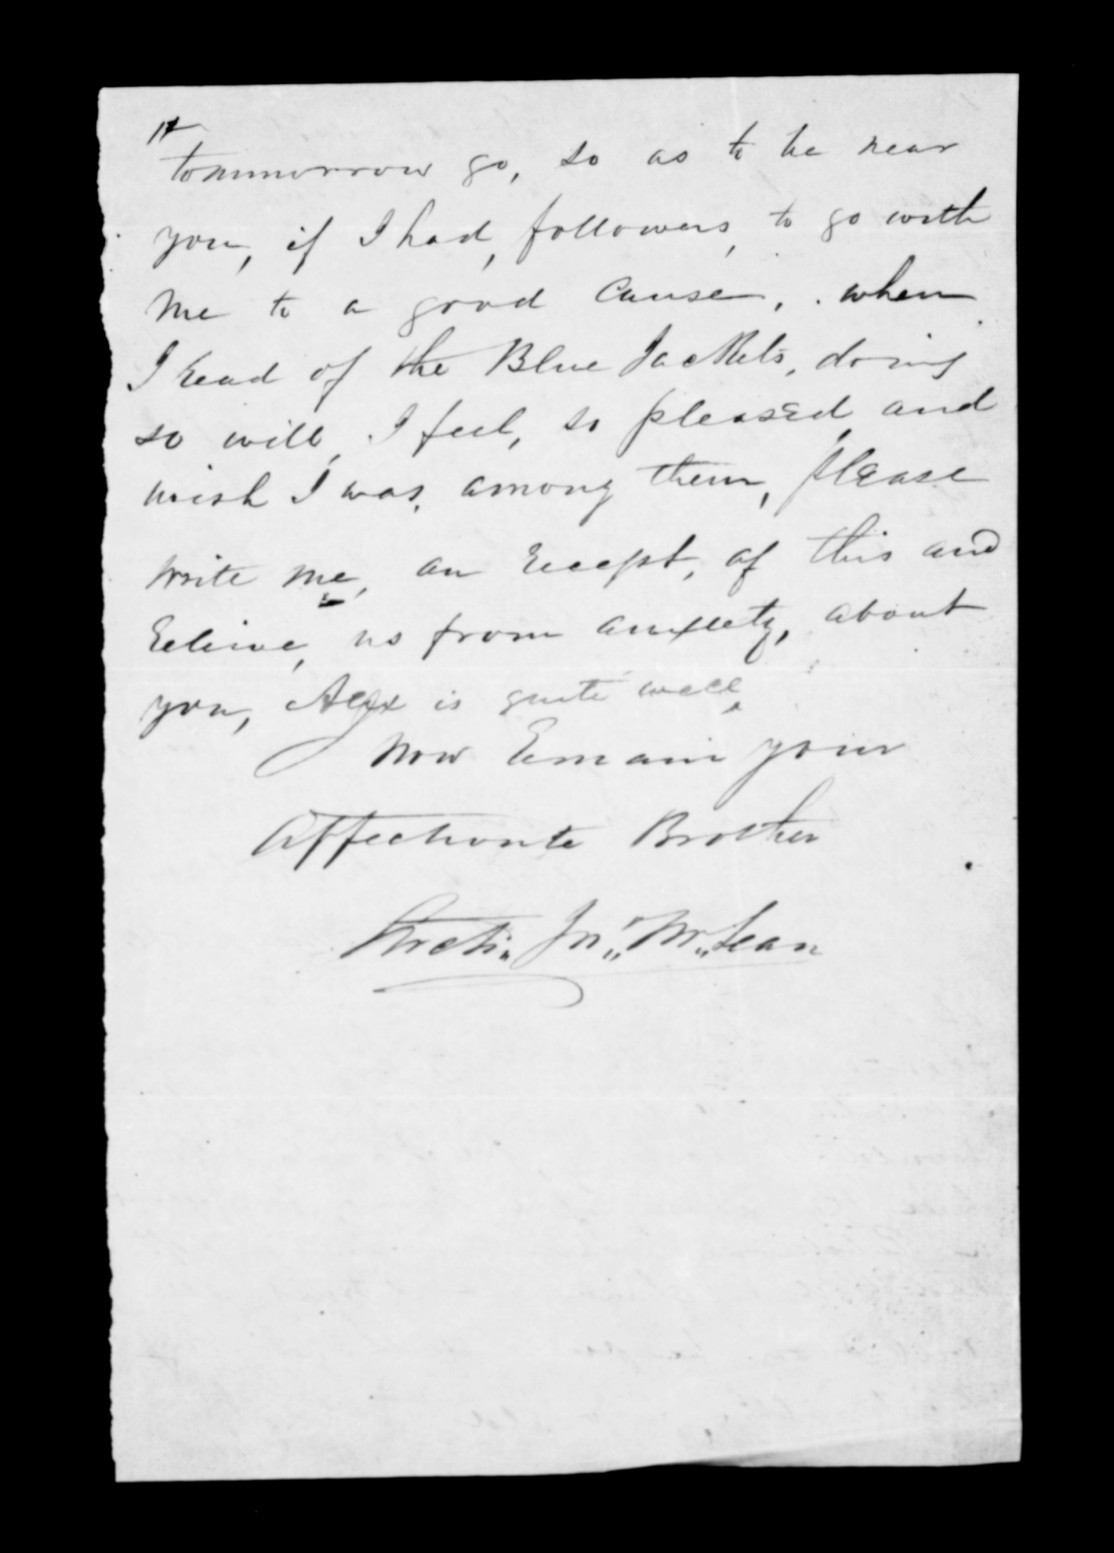 tommorrow go, so as to be near
you, if I had, followers, to go with
me to a good cause, . when
I read of the Blue Jackets, doing
so will, I feel, so pleased, and
wish I was, among them, please
write me, on Receept, of this and
Releive, us from anxiety, about
you, Alex is quite well,
Now Remain your
Affectionte Brother
Archi" Jn" Mc"Lean